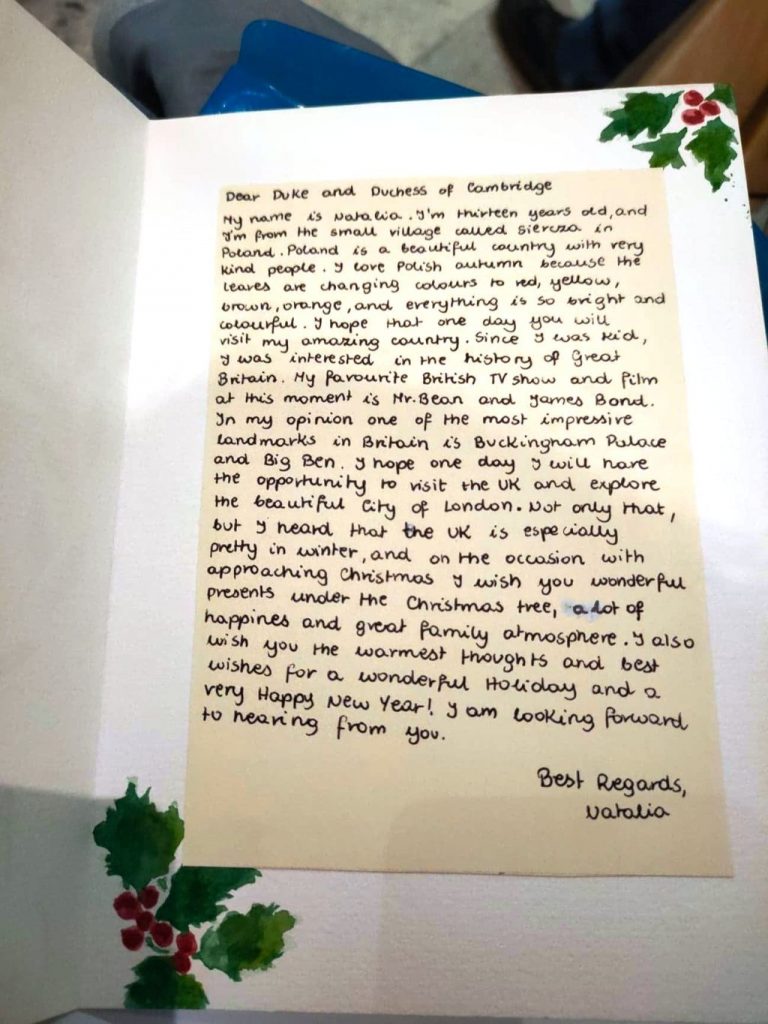 Dear Duke and Duchess of Cambridge
My name is Natalia. I'm thirteen years old, and
I'm from the small village called Siercza in
Poland. Poland is a beautiful country with very
kind people. I love Polish autumn because the
leaves are changing colours to red, yellow,
brown, orange, and everything is so bright and
colourful. I hope that one day you will
visit my amazing country. Since I was kid,
I was interested in the history of Great
Britain. My favourite British TV show and film
at this moment is Mr. Bean and James Bond.
In my opinion one of the most impressive
landmarks in Britain is Buckingham Palace
and Big Ben. I hope one day I will have
the opportunity to visit the UK and explore
the beautiful City of London. Not only that,
but I heard that the UK is especially
pretty in winter, and on the occasion with
approaching Christmas I wish you wonderful
presents under the Christmas tree, a lot of
happines and great family atmosphere. I also
wish you the warmest thoughts and best
wishes for a wonderful Holiday and a
very Happy New Year! I am looking forward
to hearing from you.
Best Regards,
Natalia